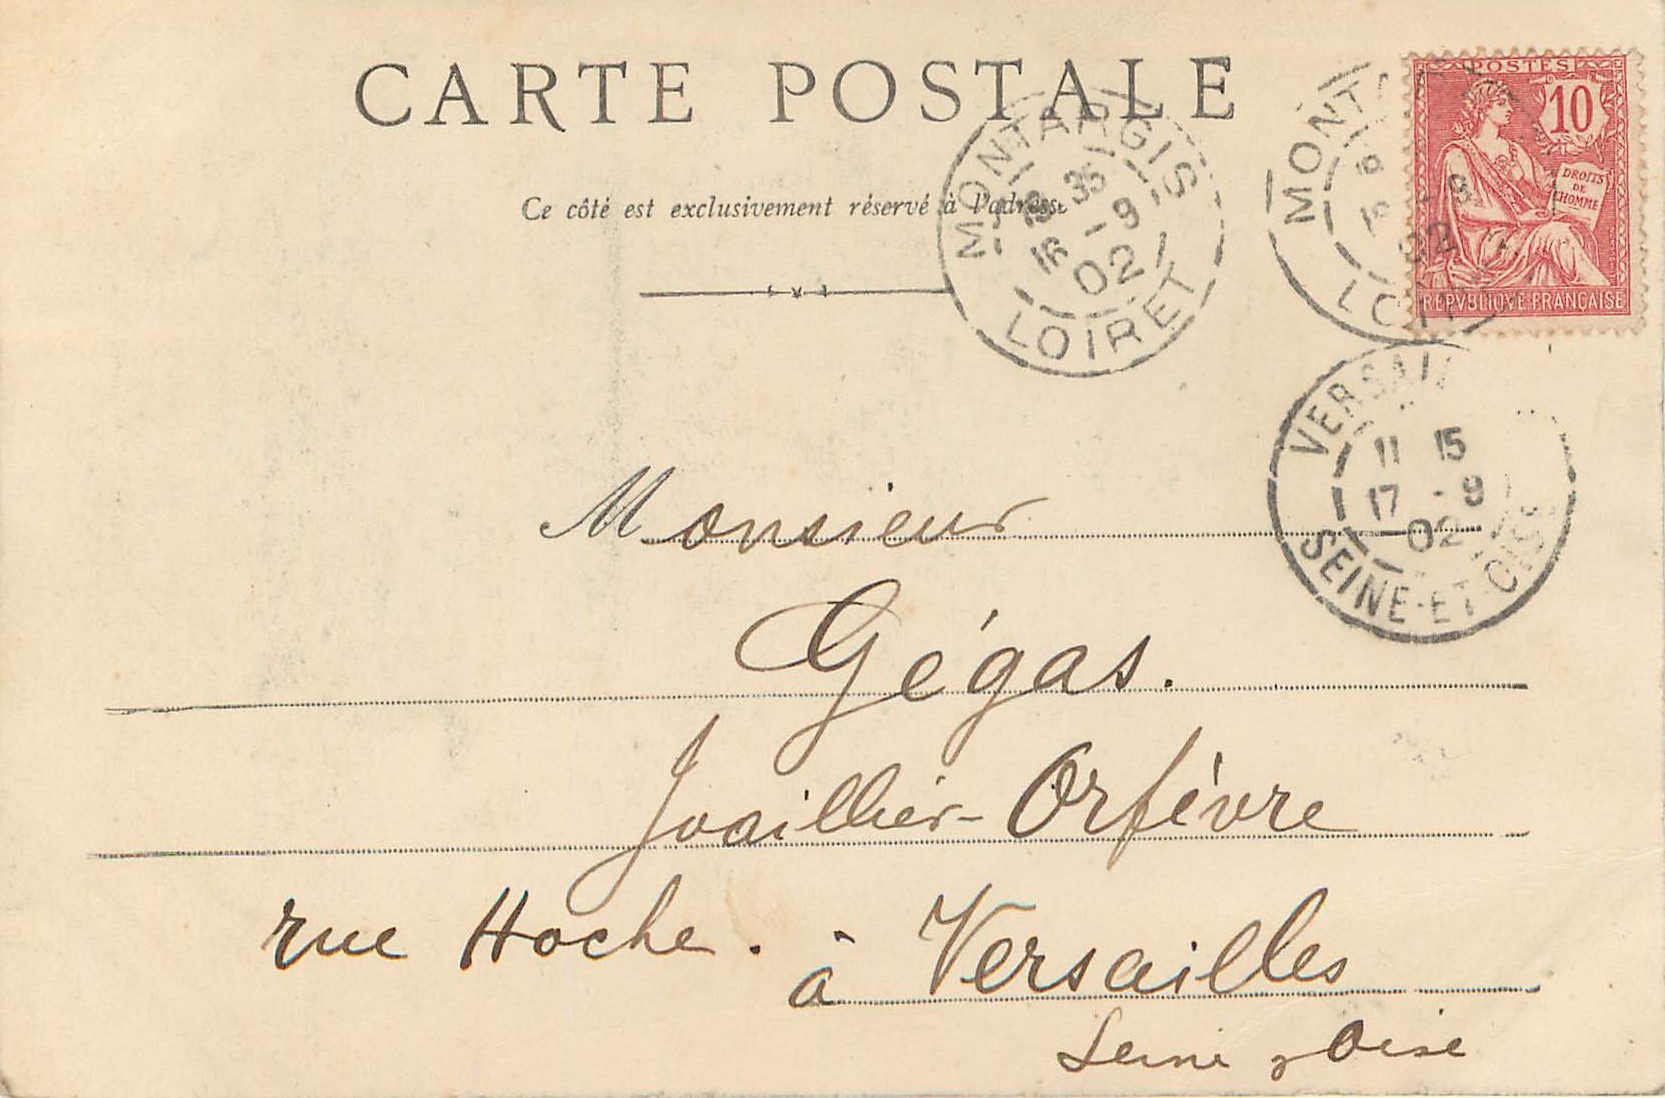 CARTE POSTALE
Ce côté est exclusivement réservé à l'adresse
MONTARGIS
18 35
16 - 9
02
LOIRET
MONT
16 - 9
02
LOI
POSTES
10
DROITS
DE
L'HOMME
REPVBLIQVE FRANÇAISE
VERSAIL
11 15
17 - 9
02
SEINE-ET-OISE
Monsieur
Gégas.
Joaillier-Orfèvre
rue Hoche.
à Versailles
Seine & Oise